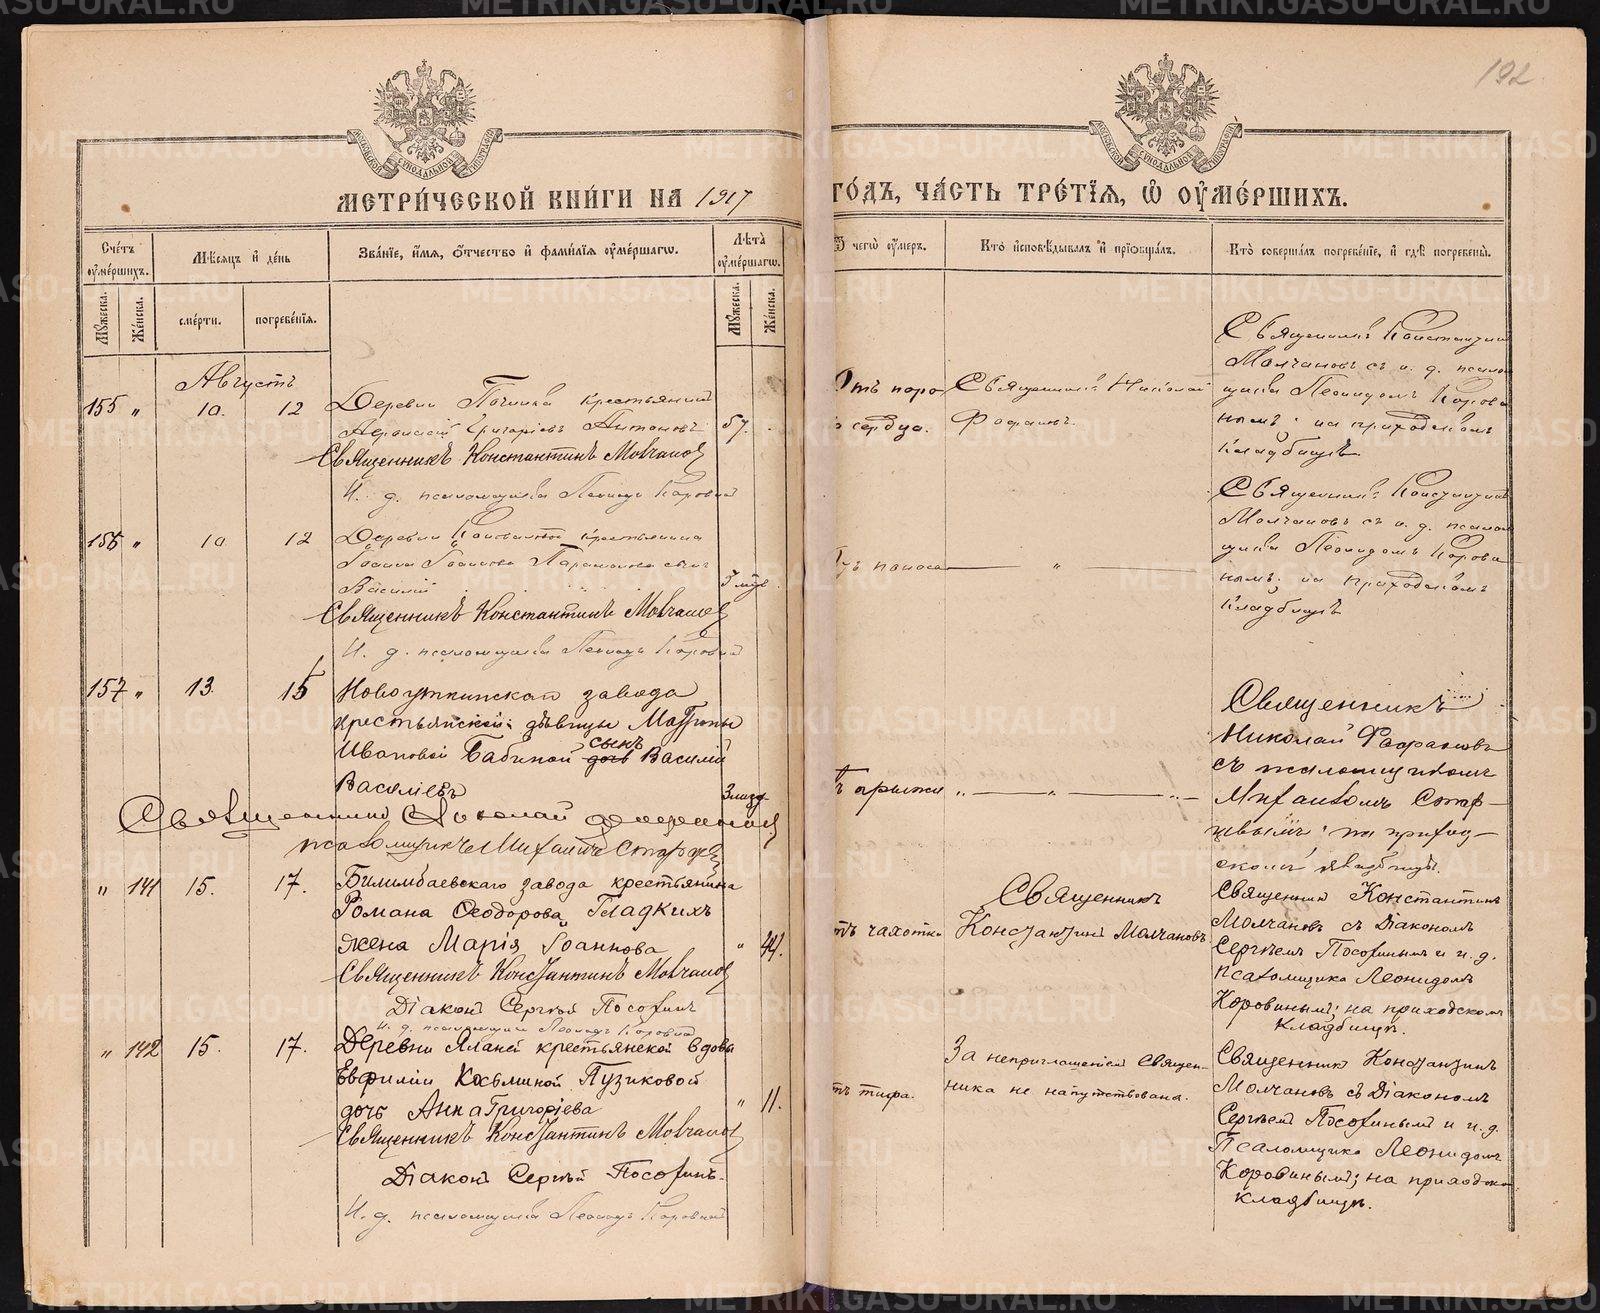 192
МЕТРИ́ЧЕСКОЙ КНИ́ГИ НА 1917
ГО́ДЪ, ЧА́СТЬ ТРЕ́ТЇѦ, Ѡ ОУ҆МЕ́РШИХЪ.
Сче́тъ оу҆ме́ршихъ.
Мѣ́сяцъ и҆ де́нь
Зва́нїе, и҆́мя, ѻ҆́тчество и҆ фами́лїя оу҆ме́ршагѡ.
Лѣта̀ оу҆ме́ршагѡ.
чегѡ̀ оу҆́меръ.
Кто̀ и҆сповѣ́дывалъ и҆ прїѡбща́лъ.
Кто̀ соверша́лъ погребе́нїе, и҆ гдѣ̀ погребены̀.
Мꙋ́жеска. Же́нска.
сме́рти. погребе́нїя.
Мꙋ́жеска. Же́нска.
Августъ
155 " 10. 12
Деревни Починка крестьянинъ
Григорьевъ Антоновъ 57.
Священникъ Константинъ Молчановъ
И. д. псаломщика Леонидъ Коровинъ
Отъ поро
сердца.
Священникъ Николай
Фофановъ.
Священникъ Константинъ
Молчановъ съ и. д. псалом
щика Леонидомъ Корови
нымъ; на приходскомъ
кладбищѣ
156 " 10 12
Деревни крестьянина
Іоанна Іоаннова Парамонова сынъ
Василій
Священникъ Константинъ Молчановъ
И. д. псаломщика Леонидъ Коровинъ
поноса " 
Священникъ Константинъ
Молчановъ съ и. д. псалом
щика Леонидомъ Корови
нымъ; на приходскомъ
кладбищѣ
157 " 13. 15
Новоуткинскаго завода
крестьянской дѣвицы Матроны
Ивановой Бабиной сынъ дочь Василій
Васильевъ
Священникъ Николай Фофановъ
псаломщикъ Михаилъ
грыжи " " "
Священникъ
Николай Фофановъ
съ псаломщикомъ
Михаиломъ Стар-
цевымъ; на приход-
скомъ кладбищѣ.
" 141 15. 17.
Билимбаевскаго завода крестьянина
Романа Ѳеодорова Гладкихъ
жена Марія Іоаннова " 44.
Священникъ Константинъ Молчановъ
Діаконъ Сергѣй Посохинъ
И. д. псаломщика Леонидъ Коровинъ
тъ чахотки
Священникъ
Константинъ Молчановъ
Священникъ Константинъ
Молчановъ съ Діакономъ
Сергѣемъ Посохинымъ и и. д.
псаломщика Леонидомъ
Коровинымъ; на приходскомъ
кладбищѣ.
" 142 15. 17.
Деревни крестьянской вдовы
Евфиміи Козьминой Пузиковой
дочь Анна Григоріева " 11.
Священникъ Константинъ Молчановъ
Діаконъ Сергѣй Посохинъ.
И. д. псаломщика Леонидъ Коровинъ
тъ тифа.
За неприглашеніемъ священ-
ника не напутствована.
Священникъ Константинъ
Молчановъ съ Діакономъ
Сергѣемъ Посохинымъ и и. д.
Псаломщика Леонидомъ
Коровинымъ; на приходском
кладбищѣ.